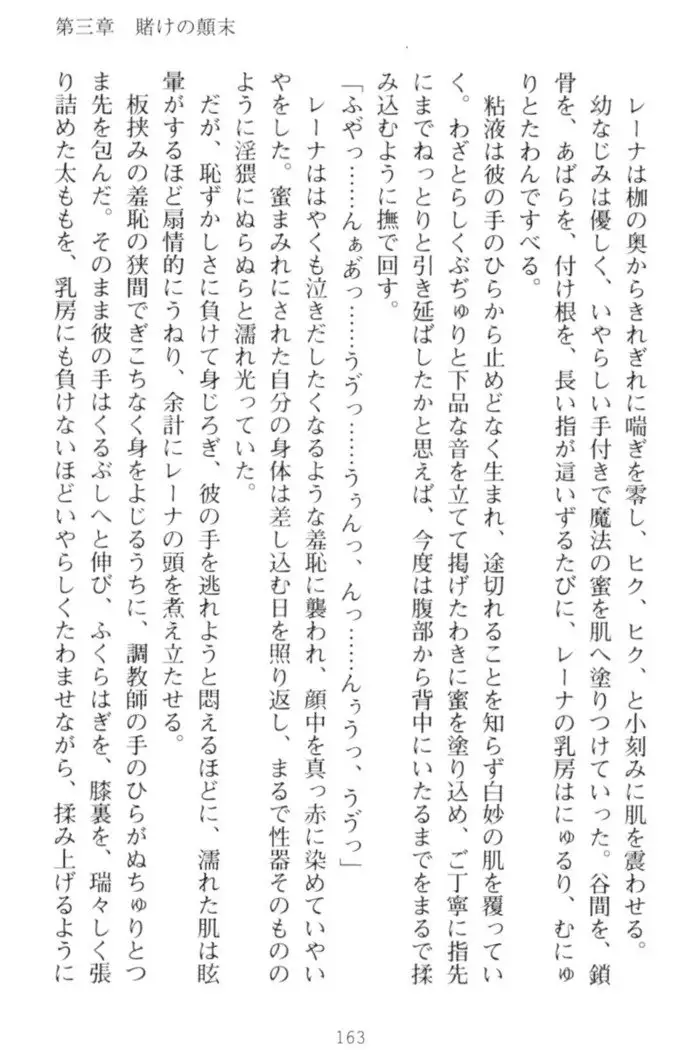 第三章　賭けの顛末
　レーナは枷の奥からきれぎれに喘ぎを零し、ヒク、ヒク、と小刻みに肌を震わせる。
　幼なじみは優しく、いやらしい手付きで魔法の蜜を肌へ塗りつけていった。谷間を、鎖
骨を、あばらを、付け根を、長い指が這いずるたびに、レーナの乳房はにゅるり、むにゅ
りとたわんですべる。
　粘液は彼の手のひらから止めどなく生まれ、途切れることを知らず白妙の肌を覆ってい
く。わざとらしくぶぢゅりと下品な音を立てて掲げたわきに蜜を塗り込め、ご丁寧に指先
にまでねっとりと引き延ばしたかと思えば、今度は腹部から背中にいたるまでをまるで揉
み込むように撫で回す。
「ふやっ……んぁあ゙っ……うゔっ……うぅんっ、んっ……んぅうっ、うゔっ」
　レーナははやくも泣きだしたくなるような羞恥に襲われ、顔中を真っ赤に染めていやい
やをした。蜜まみれにされた自分の身体は差し込む日を照り返し、まるで性器そのものの
ように淫猥にぬらぬらと濡れ光っていた。
　だが、恥ずかしさに負けて身じろぎ、彼の手を逃れようと悶えるほどに、濡れた肌は眩
暈がするほど扇情的にうねり、余計にレーナの頭を煮え立たせる。
　板挟みの羞恥の狭間でぎこちなく身をよじるうちに、調教師の手のひらがぬちゅりとつ
ま先を包んだ。そのまま彼の手はくるぶしへと伸び、ふくらはぎを、膝裏を、瑞々しく張
り詰めた太ももを、乳房にも負けないほどいやらしくたわませながら、揉み上げるように
163